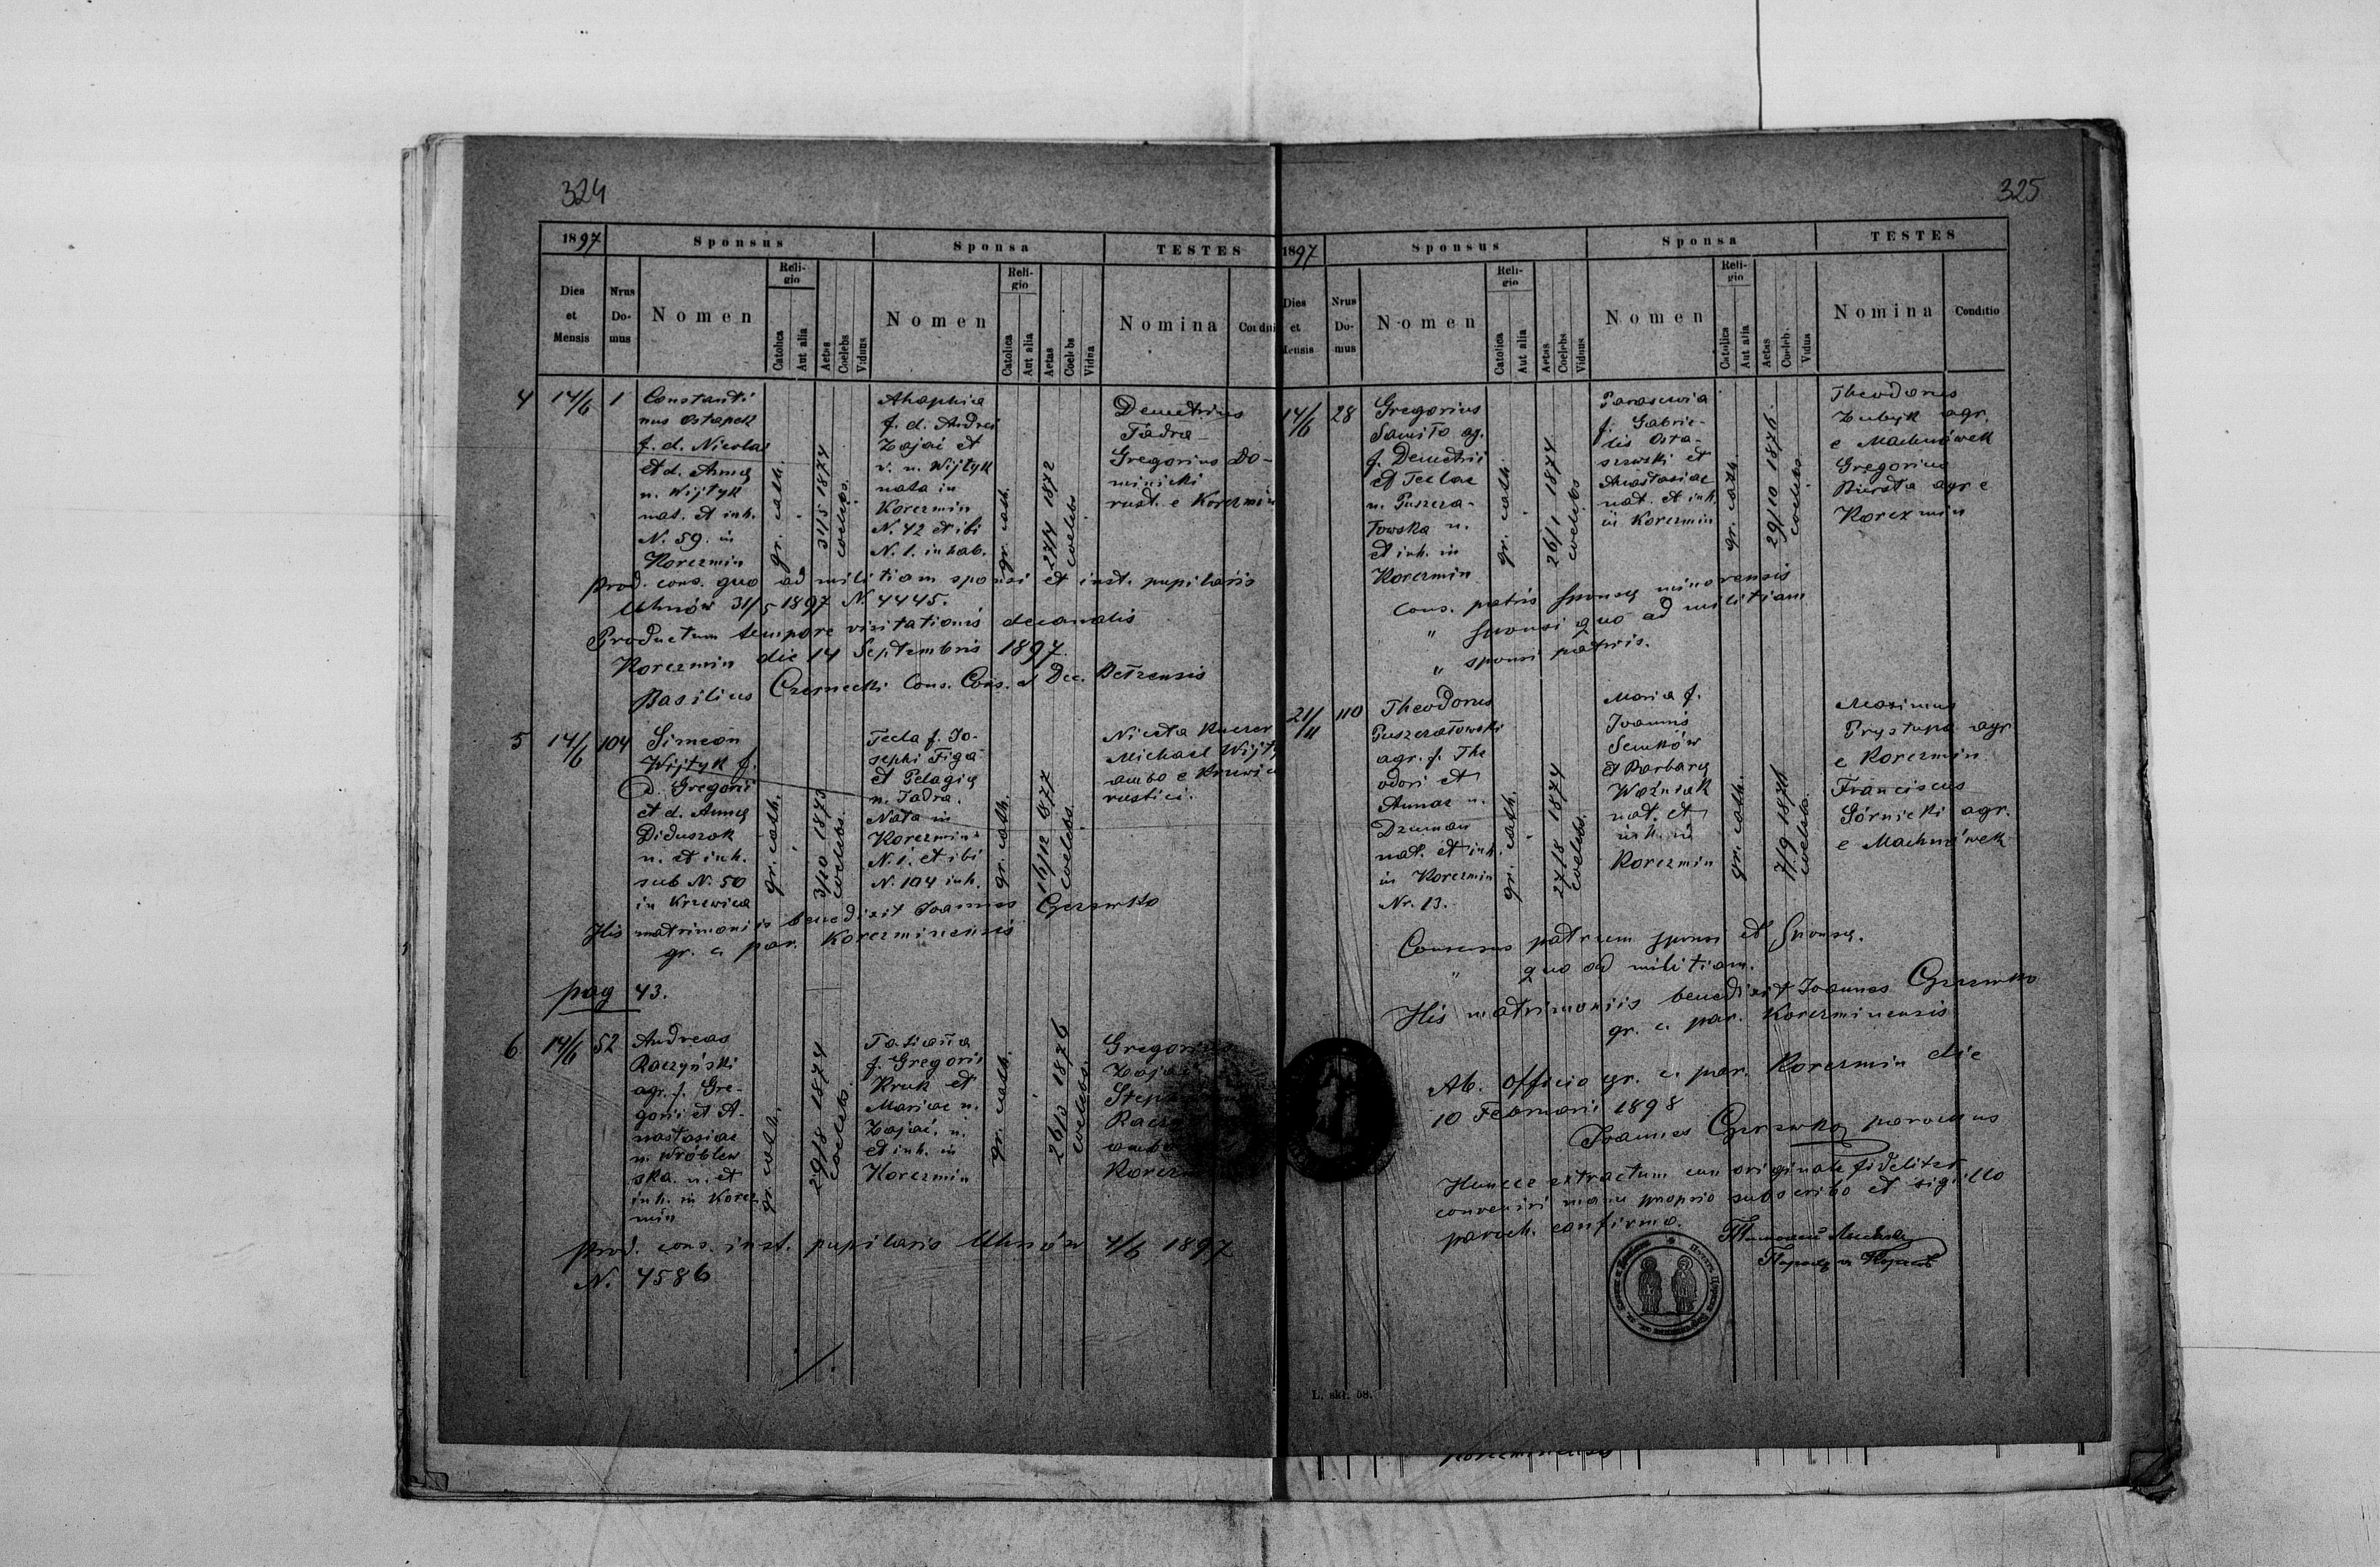 324
1897
Sponsus
Sponsa
TESTES
Dies
et
Mensis
Nrus
Do-
mus
Nomen
Reli-
gio
Catolica
Aut alia
Aetas
Coelebs
Viduus
Nomen
Reli-
gio
Catolica
Aut alia
Aetas
Coelebs
Vidua
Nomina
4
14/6
1
Constanti
nus Ostapek
f. d. Nicolae
et d. Annę
n. Wijtyk
nat. et inh.
N. 59. in
Korczmin
gr. cath.
31/5 1874
coelebs.
Ahaphia
f. d. Andrei
Zająć et
n. Wijtyk
nata in
Korczmin
N. 42 et ibi
N. 1. inhab.
gr. cath.
27/4 1872
coelebs
Demetrius
Fadra
Gregorius Do-
minicki
rust. e Korczmin
prod. cons. quo ad militiam sponsi et inst. pupilaris
Uhnów 31/5 1897 N. 4445.
Productum tempore visitationis decanalis
Korczmin die 14 Septembris 1897.
Basilius Czernecki Cons. Cons. et Dec. Bełzensis
5
14/6
104
Simeon
Wijtyk f.
D. Gregorii
et d. Annę
Diduszok
n. et inh.
sub N. 50
in Krzewica
gr. cath.
3/10 1873
coelebs.
Tecla f. Jo-
sephi Figa
et Pelagię
n. Jadra.
Nata in
Korczmin
N. 1. et ibi
N. 104 inh.
gr. cath.
16/12 1877
coelebs
Michael
ambo e
rustici.
His matrimoniis benedixit Joannes
gr. c. par. Korczminensis
pag 43.
6
14/6
52
Andreas
Raczyński
agr. f. Gre-
gorii et A-
nastasiae
n. Wróblew
ska. n. et
inh. in Korcz
min
gr. cath.
29/8 1874
coelebs.
Tatianna
f. Gregorii
Kruk et
Mariae n.
Zająć. n.
et inh. in
Korczmin
gr. cath.
1876
coelebs.
Gregorius
ambo
prod. cons. inst. pupilaris Uhnów 4/6 1897
N. 4586
325
1897
Sponsus
Sponsa
TESTES
Dies
et
Mensis
Nrus
Do-
mus
Nomen
Reli-
gio
Catolica
Aut alia
Aetas
Coelebs
Viduus
Nomen
Reli-
gio
Catolica
Aut alia
Aetas
Coeleb.
Vidua
Nomina
Conditio
14/6
28
Gregorius
Samiło ag.
f. Demetrii
et Teclae
n. Puszcza-
łowska n.
et inh. in
Korczmin
gr. cath.
26/1 1874
coelebs
Parascevia
f. Gabrie-
lis Osta-
szewski et
Anastasiae
nat. et inh.
in Korczmin
gr. cath.
29/10 1876.
coelebs
Theodorus
Zubyk agr.
e Machnówek
Gregorius
agr e
Korczmin
Cons. patris sponsę minorensis
" sponsi quo ad militiam
" sponsi patris.
21/11
110
Theodorus
Puszczałowski
agr. f. The
odori et
Annae n.
Dziuman
nat. et inh.
in Korczmin
Nr. 13.
gr. cath.
27/8 1874
coelebs.
Maria f.
Joannis
Senków
et Barbarę
Woźniak
nat. et
inh. in
Korczmin
gr. cath.
7/9 1876
coelebs.
Maximus
Prystupa agr
e Korczmin
Franciscus
Górnicki agr.
e Machnówek
Consensus patrum sponsi et sponsę.
" quo ad militiam.
His matrimoniis benedixit Joannes
gr. c. par. Korczminensis
Ab. officio gr. c. par. Korczmin die
10 Februarii 1898
Joannes parochus
Huncce extractum cum originale fideliter
conveniri manu proprio subscribo et sigillo
paroch. confirmo.
L. skł. 58.